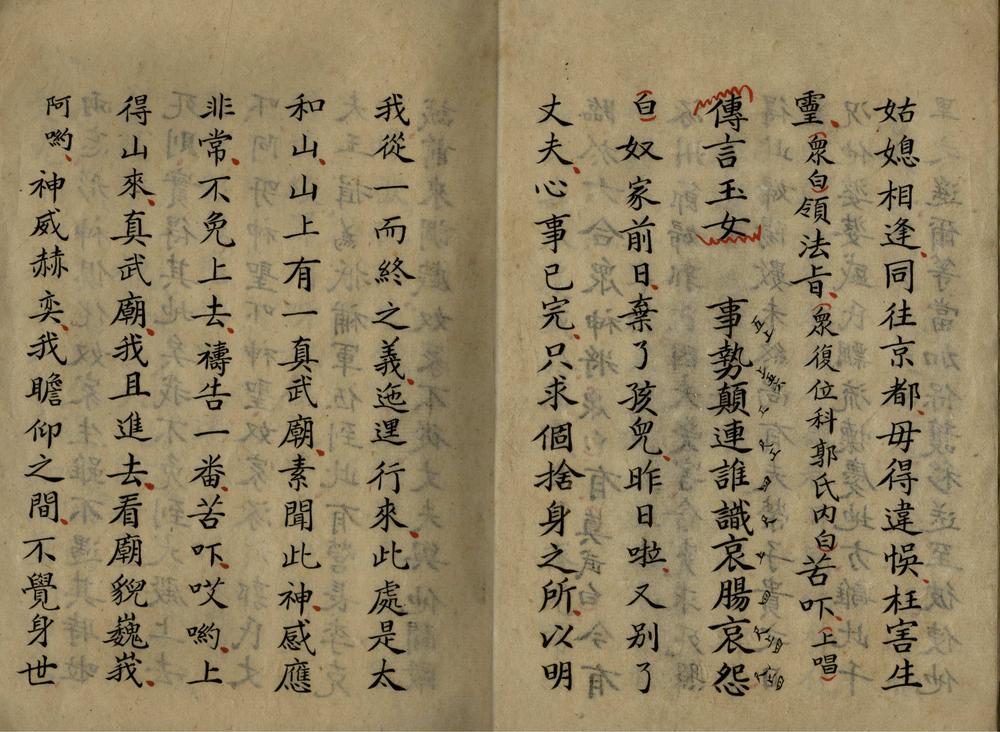 姑媳相逢同往京都毋得違悞枉害生
靈衆白領法旨衆復位科郭氏内白苦吓上唱
傳言玉女 事勢顛連誰識哀腸哀怨
白奴家前日棄了孩兒昨日啦又別了
丈夫心事已完只求個捨身之所以明
我從一而終之義迤逞行來此處是太
和山山上有一真武廟素聞此神感應
非常不免上去禱告一番苦吓哎喲上
得山來真武廟我且進去看廟貌巍峩
阿喲神威赫奕我瞻仰之間不覺身世